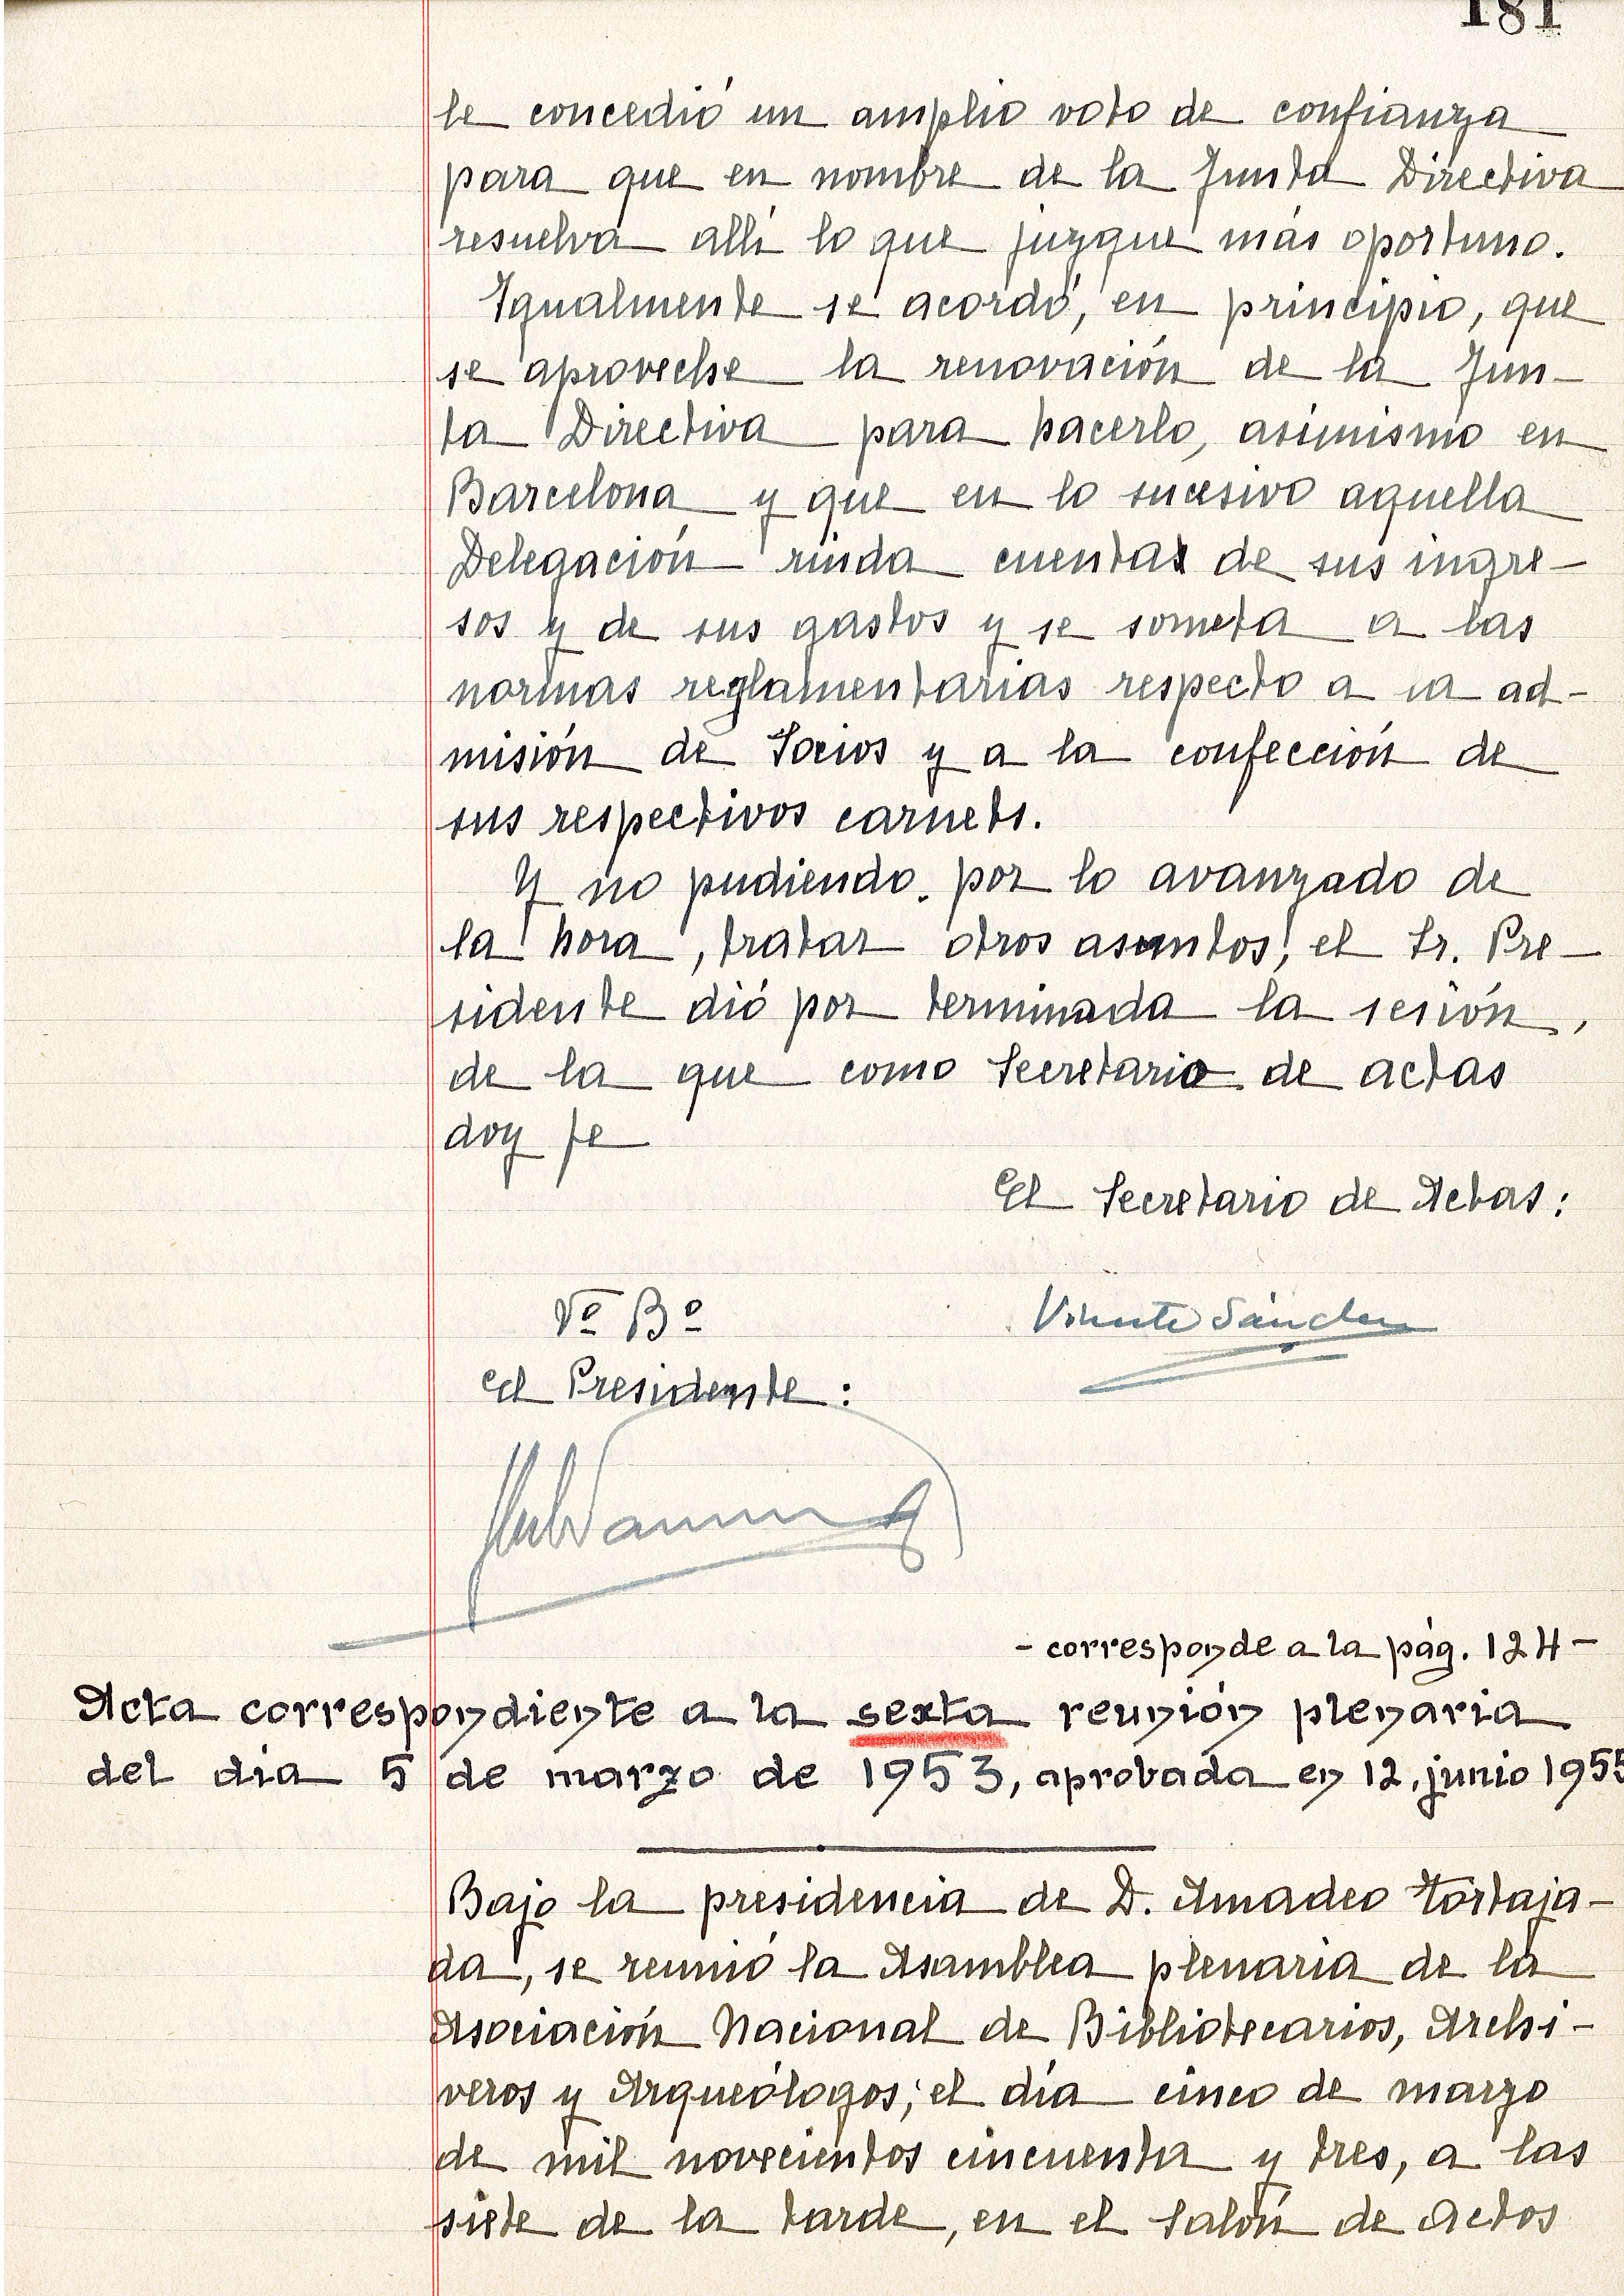 181
le concedió un amplio voto de confianza
para que en nombre de la Junta Directiva
resuelva allí lo que juzgue más oportuno.
Igualmente se acordó, en principio, que
se aproveche la renovación de la Jun-
ta Directiva para hacerlo, asimismo en
Barcelona y que en lo sucesivo aquella
Delegación rinda cuentas de sus ingre-
sos y de sus gastos y se someta a las
normas reglamentarias respecto a la ad-
misión de Socios y a la confección de
sus respectivos carnets.
Y no pudiendo, por lo avanzado de
la hora, tratar otros asuntos, el Sr. Pre-
sidente dió por terminada la sesión,
de la que como Secretario de actas
doy fe
El Secretario de Actas:
Vº Bº
Vicente Sánchez
El Presidente:
- corresponde a la pág. 124 -
Acta correspondiente a la sexta reunión plenaria
del día 5 de marzo de 1953, aprobada en 12, junio 1955
Bajo la presidencia de D. Amadeo Tortaja-
da, se reunió la Asamblea plenaria de la
Asociación Nacional de Bibliotecarios, Archi-
veros y Arqueólogos, el día cinco de marzo
de mil novecientos cincuenta y tres, a las
siete de la tarde, en el Salón de Actos